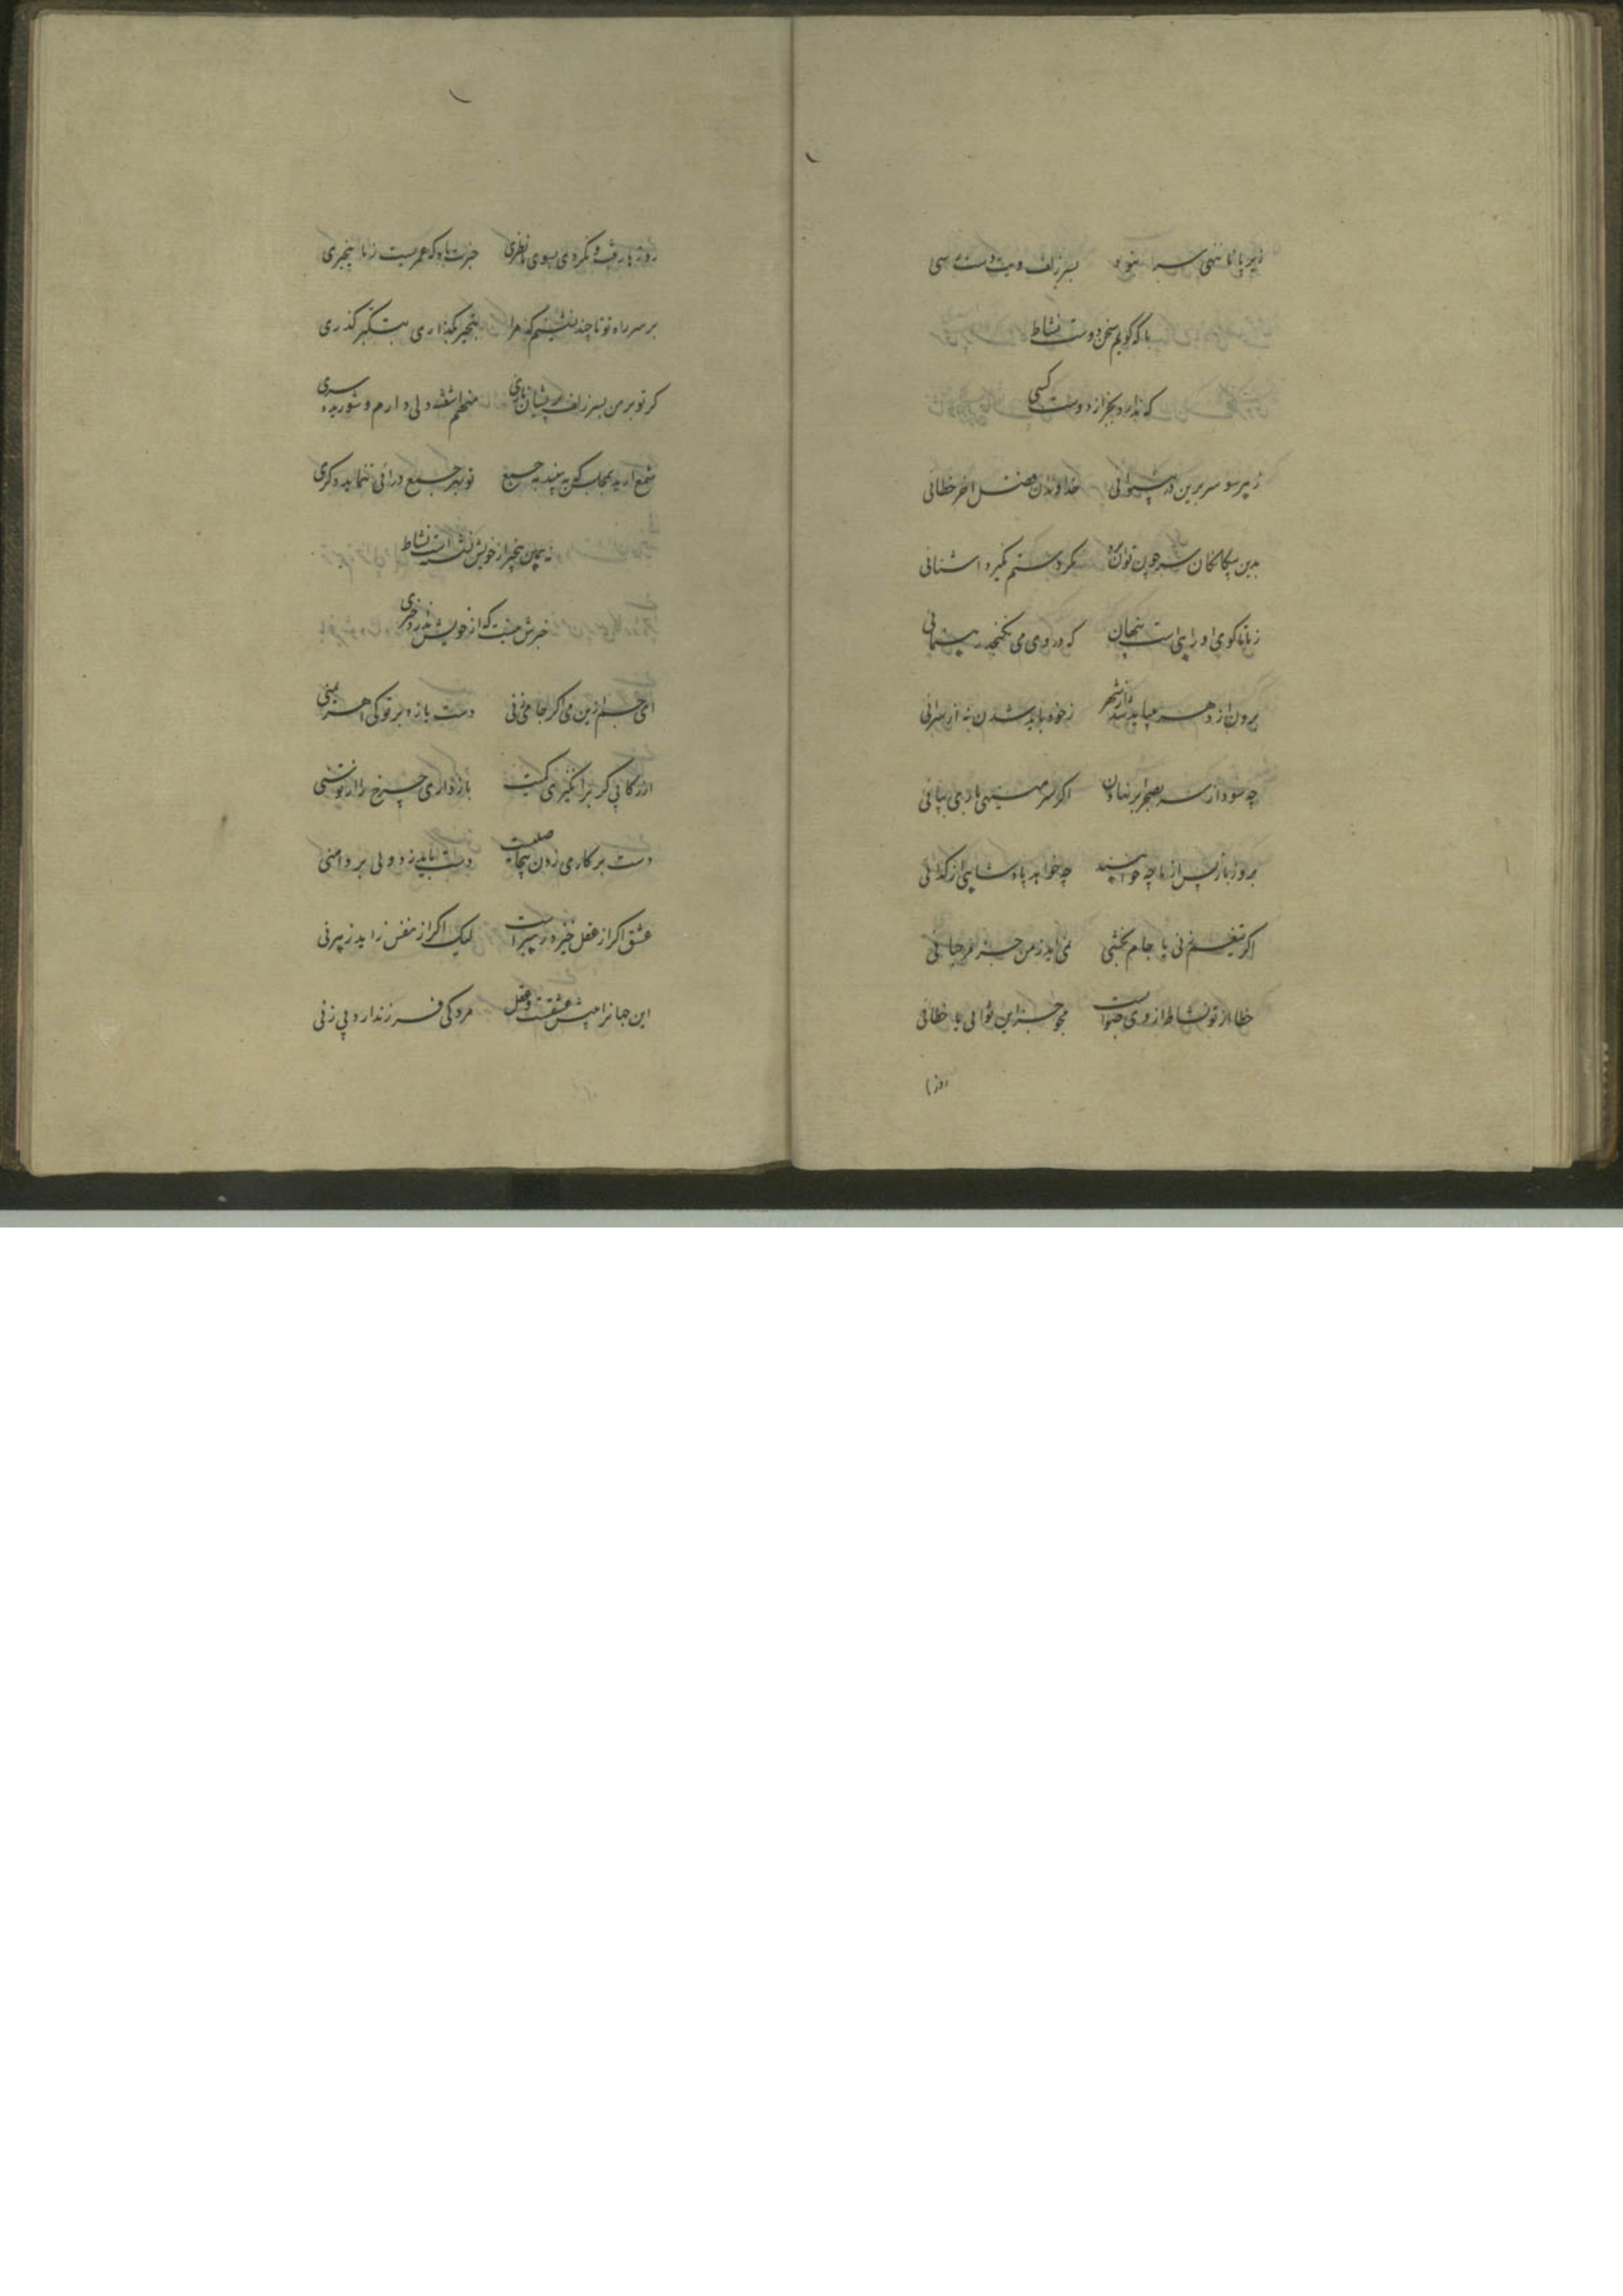 زیر پا تا ننهی سر نبود بسر زلف ویت دست رسی
با که گویم سخن دوست نشاط
که ندارد بجز از دوست کسی
ز پیر سو سر برین در خداوندان فضل اخر خطائی
بدین بیکانکان سر چون توان مکر دستم نکیرد اشنائی
ز ما تا کوی او راهی است پنهان که در وی می نکنجد رهنمائی
برون از شهر میباید شد ز خود باید شدن نه از سرائی
چه سود از سر بصحرا بر نهادن اکر سر مینهی باری بپائی
برو زاهد از ما چه خواهید چه خواهد پادشاهی از کدائی
اکر تیغم زنی یا جام بخشی نمی اید ز من جز مرحبائی
خطا از تو نشاط از وی صوابست مجو جز این ثوابی یا خطائی
روز
روزها رفت و نکردی بسوی ما نظری خبرت باد که عمریست ز ما بیخبری
بر سر راه تو تا چند نشینم که مرا بتحیر بکذاری بتکبر کذری
کر تو بر من بسر زلف پریشان نازی منهم اشفته دلی دارم و شوریده سری
شمع ارید بمجلس که به بینند به جمع تو بهر جمع در ائی ننماید دکری
نه همین بیخبر از خویش نشسته است نشاط
خبرش نیست که از خویش ندارد خبری
ای جم ازین می اکر جامی زنی دست بازد بر تو کی اهریمنی
از رکابی کر بر انکیزی کمیت باز داری چرخ را از توسنی
دست بر کاری زدن بیجا صلست دست باید زد ولی بر دامنی
عشق اکر از عقل خیزد رهبر است لیک اکر از نفس زاید رهزنی
این جهانرا عشقست و عقل مرد کی فرزند ارد بی زنی